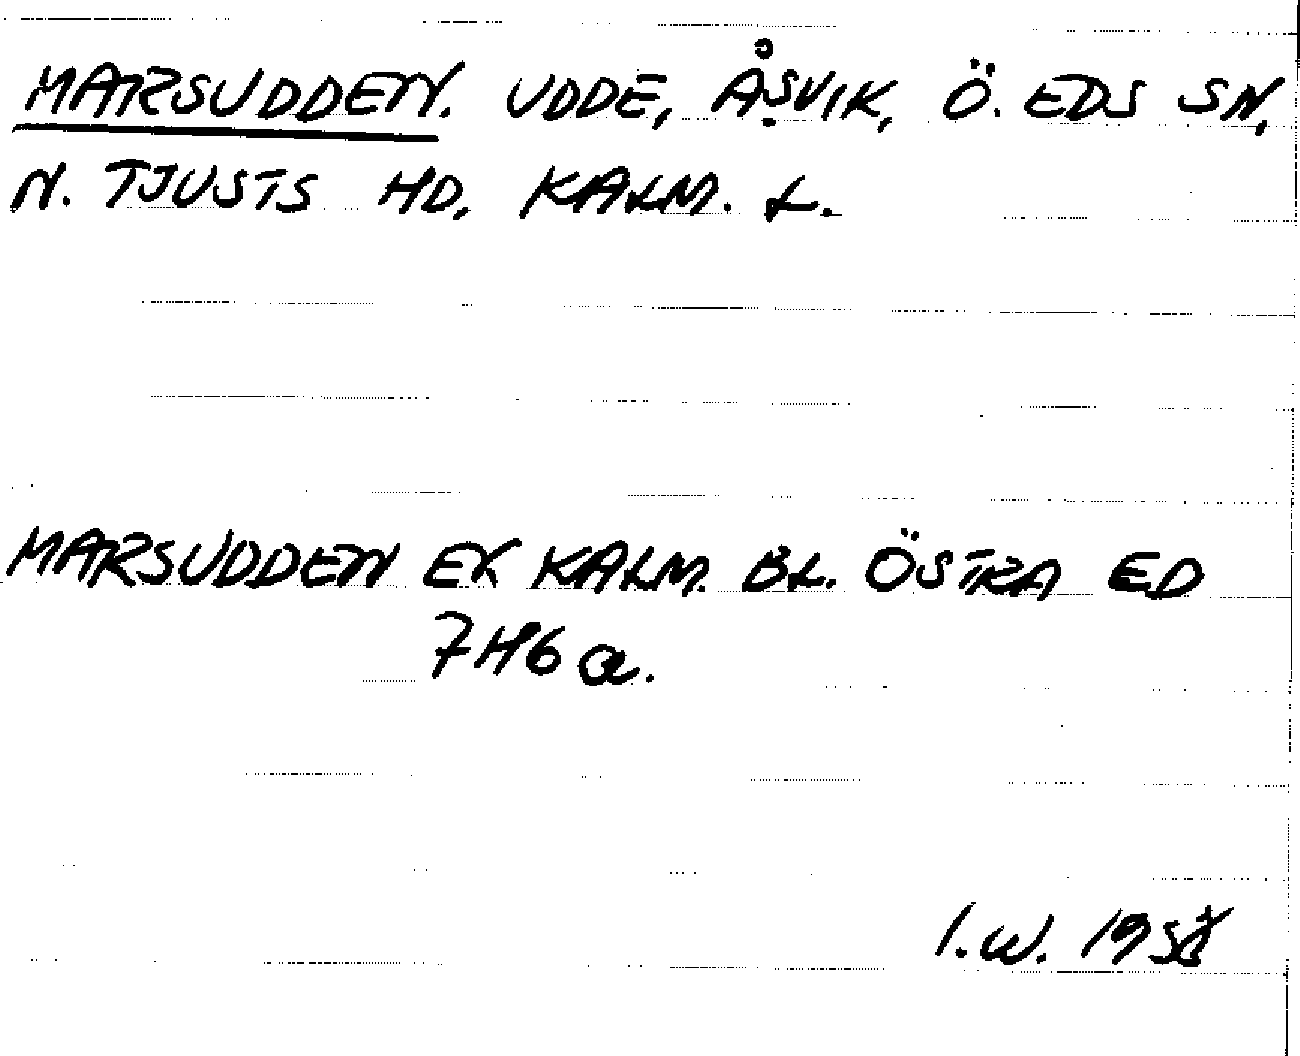 MARSUDDEN. UDDE, ÅSVIK, Ö. EDS SN,
N. TJUSTS HD, KALM. L.
MARSUDDEN EK KALM. BL. ÖSTRA ED
7H6a.
I.W.